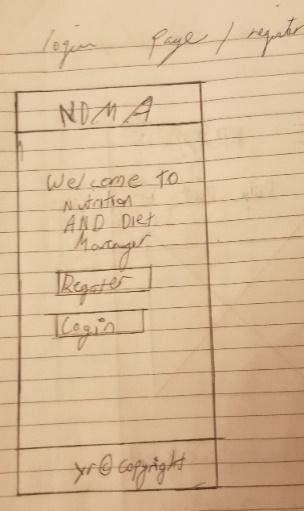 login page / register
NDMA
Welcome To
Nutrition
AND Diet
Manager
Register
Login
yr © Copyright